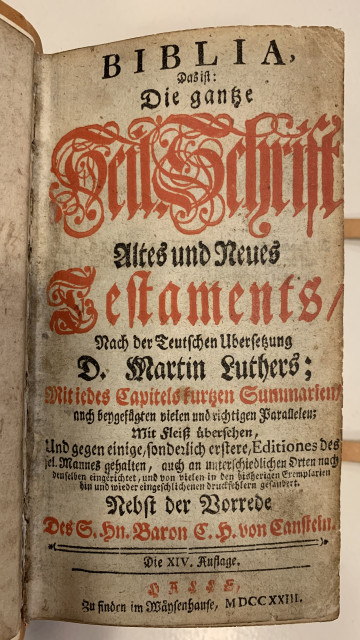 BIBLIA,
Das ist:
Die gantze
Heil. Schrift
Altes und Neues
Testaments/
Nach der Teutschen Ubersetzung
D. Martin Luthers;
Mit jedes Capitels kurtzen Summarien,
auch beygefügten vielen und richtigen Parallelen;
Mit Fleiß übersehen,
Und gegen einige, sonderlich erstere, Editiones des
sel. Mannes gehalten, auch an unterschiedlichen Orten nach
denselben eingerichtet, und von vielen in den bisherigen Exemplarien
hin und wieder eingeschlichenen druckfehlern gesäubert.
Nebst der Vorrede
Des S. Hn. Baron C. H. von Canstein.
Die XIV. Auflage.
HALLE,
Zu finden im Wäysenhause, MDCCXXIII.